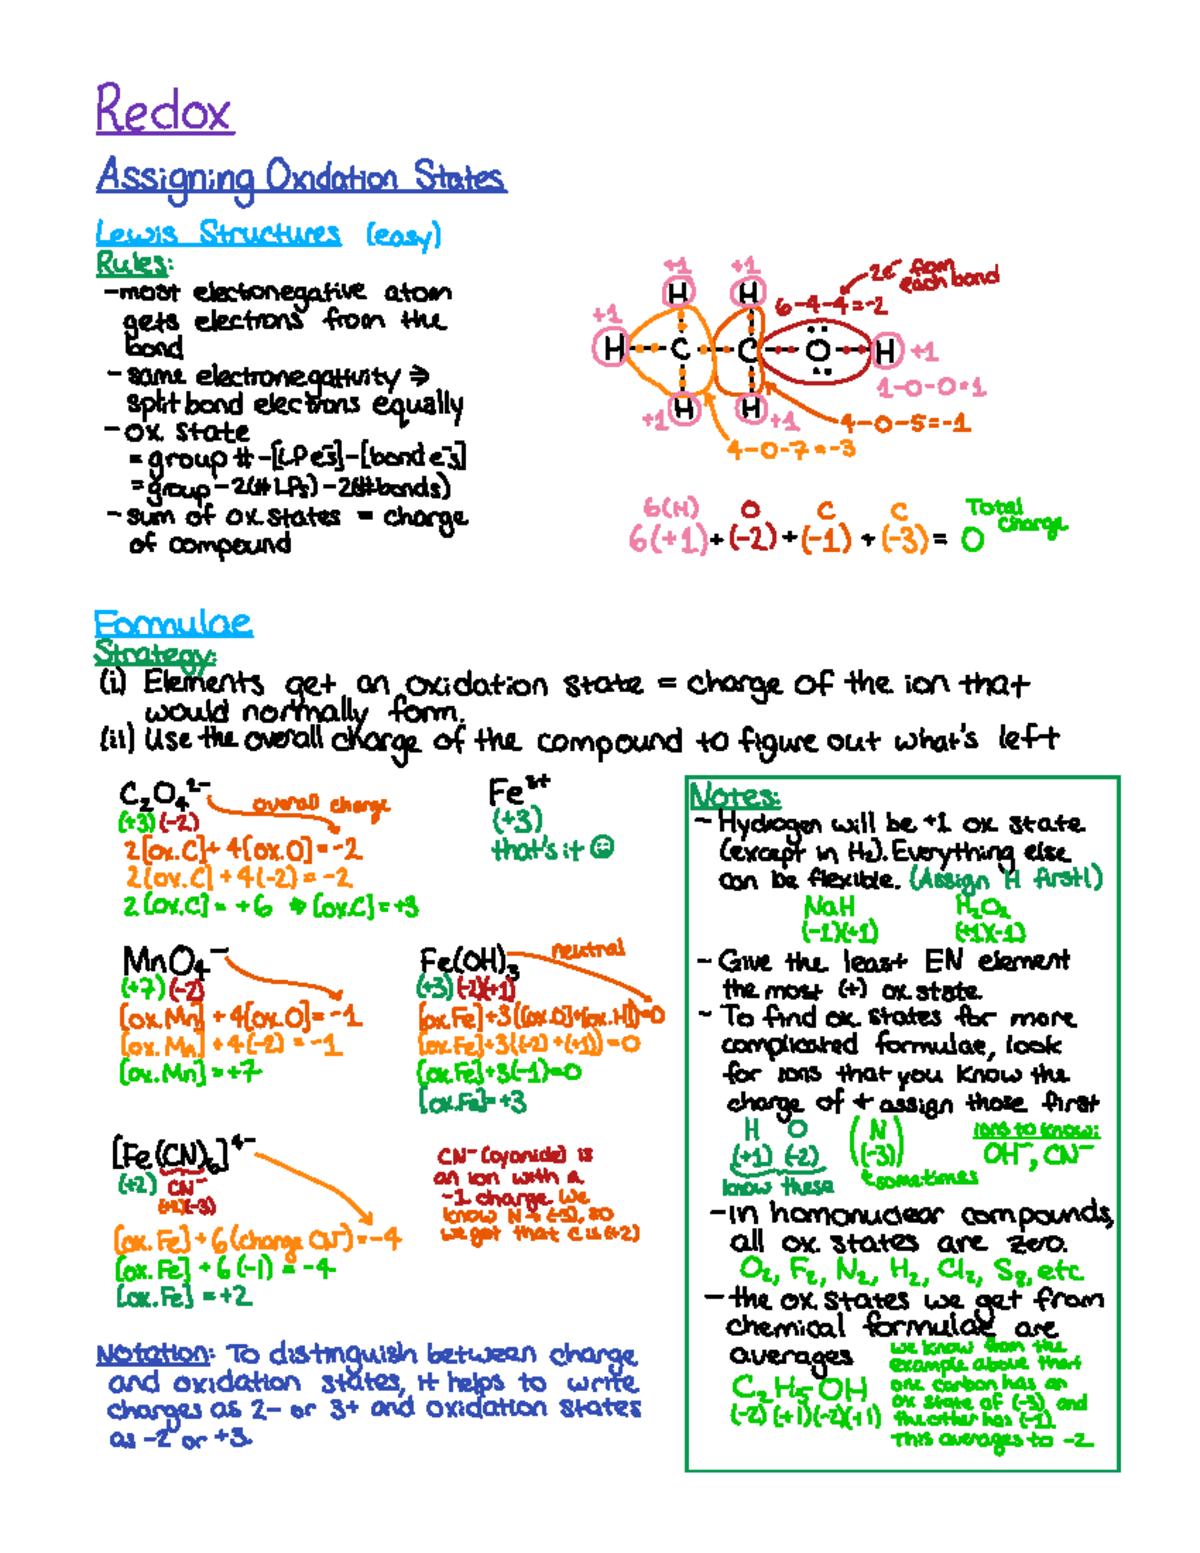 Redox
Assigning Oxidation States
Lewis Structures (easy)
Rules:
-most electronegative atom
gets electrons from the
bond
- same electronegativity ⇒
split bond electrons equally
- ox. state
= group # -[LP e⁻s]-[bond e⁻s]
= group - 2(# LPs) - 2(# bonds)
- sum of ox. states = charge
of compound
+1 +1
H H
2e⁻ from
each bond
6-4-4=-2
+1
H C C O H +1
1-0-0=1
+1 H H +1
4-0-5=-1
4-0-7=-3
6(H) O C C Total
charge
6(+1)+(-2)+(-1)+(-3)= 0
Formulae
Strategy:
(i) Elements get an oxidation state = charge of the ion that
would normally form.
(ii) Use the overall charge of the compound to figure out what's left
C₂O₄²⁻
overall charge
(+3)(-2)
2[ox.C]+4[ox.O]=-2
2[ox.C]+4(-2)=-2
2[ox.C]=+6 ⇒ [ox.C]=+3
Fe³⁺
(+3)
that's it ☺
MnO₄⁻
(+7)(-2)
[ox.Mn]+4[ox.O]=-1
[ox.Mn]+4(-2)=-1
[ox.Mn]=+7
Fe(OH)₃
neutral
(+3)(-2)(+1)
[ox.Fe]+3([ox.O]+[ox.H])=0
[ox.Fe]+3((-2)+(+1))=0
[ox.Fe]+3(-1)=0
[ox.Fe]=+3
[Fe(CN)₆]⁴⁻
(+2) CN⁻
(+2)(-3)
[ox.Fe]+6(charge CN⁻)=-4
[ox.Fe]+6(-1)=-4
[ox.Fe]=+2
CN⁻ (cyanide) is
an ion with a
-1 charge. We
know N is (-3), so
we get that C is (+2)
Notation: To distinguish between charge
and oxidation states, it helps to write
charges as 2- or 3+ and oxidation states
as -2 or +3.
Notes:
- Hydrogen will be +1 ox state
(except in H₂). Everything else
can be flexible. (Assign H first!)
NaH H₂O₂
(-1)(+1) (+1)(-1)
- Give the least EN element
the most (+) ox.state.
- To find ox. states for more
complicated formulae, look
for ions that you know the
charge of + assign those first
H O (N) ions to know:
(+1) (-2) (-3) OH⁻, CN⁻
know these sometimes
-in homonuclear compounds,
all ox. states are zero.
O₂, F₂, N₂, H₂, Cl₂, S₈, etc
- the ox. states we get from
chemical formulae are
averages
C₂H₅OH
(-2)(+1)(-2)(+1)
we know from the
example above that
one carbon has an
ox state of (-3) and
the other has (-1).
This averages to -2